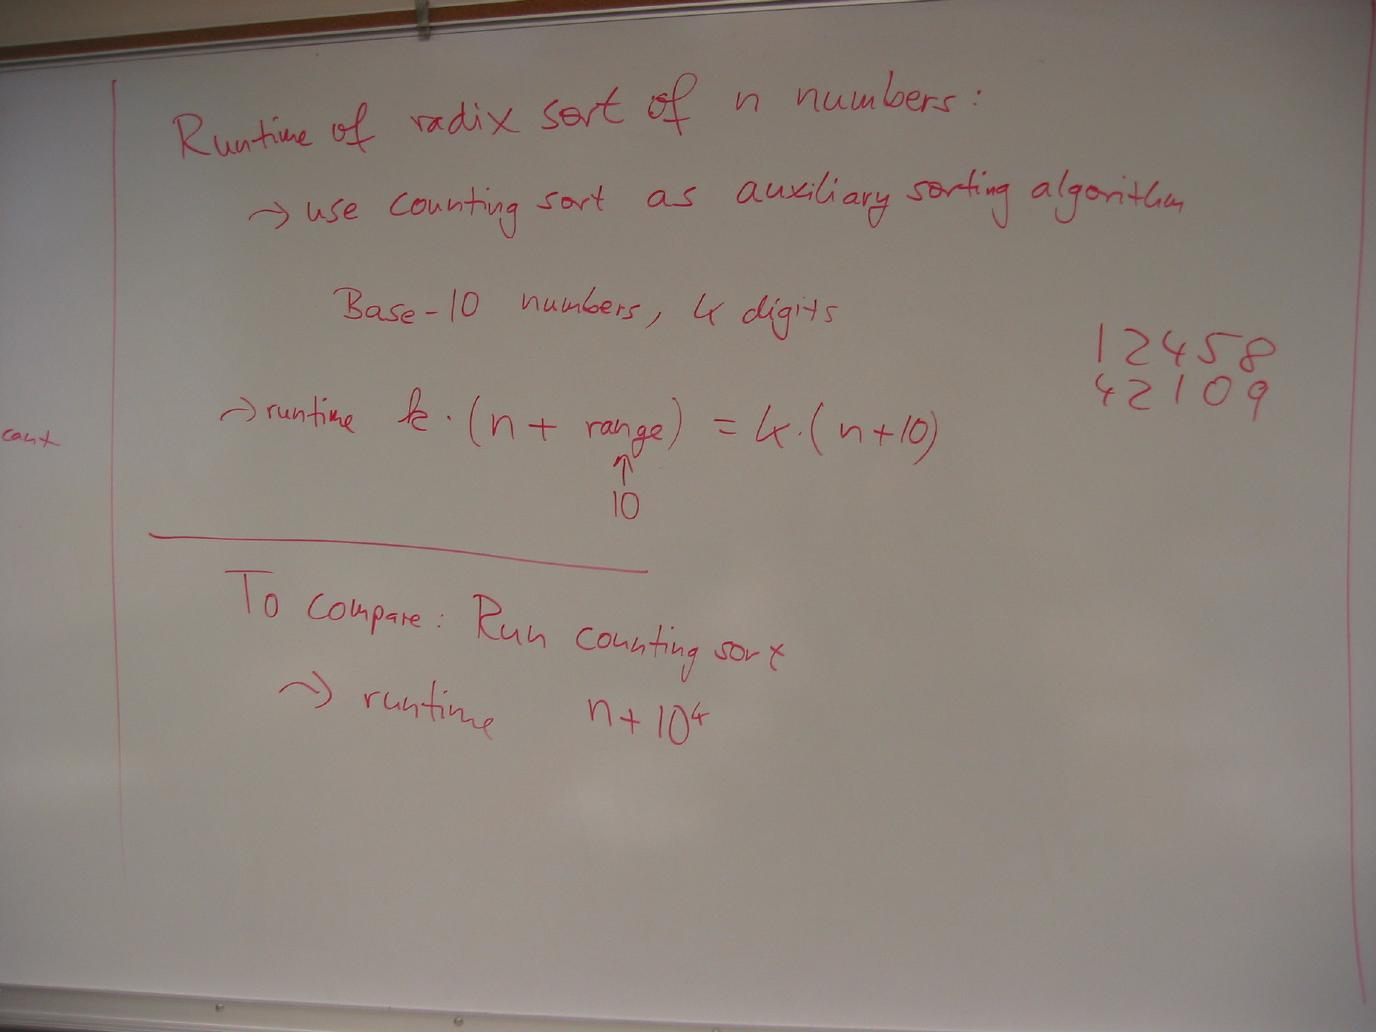 Runtime of radix sort of n numbers:
→ use counting sort as auxiliary sorting algorithm
Base-10 numbers, 4 digits
12458
42109
→ runtime k·(n + range) = 4·(n+10)
↑
10
count
To compare: Run counting sort
→ runtime n+10⁴